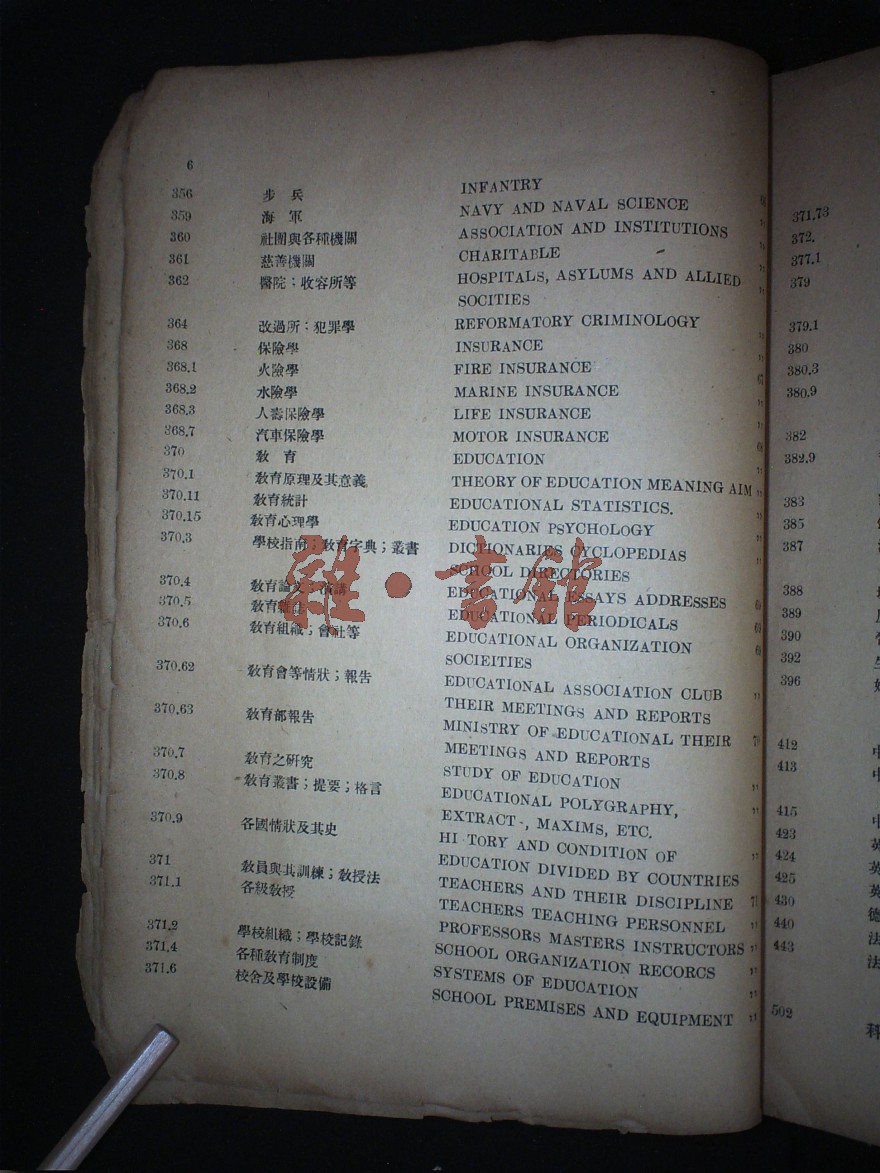 6
356 步兵 INFANTRY
359 海軍 NAVY AND NAVAL SCIENCE "
360 社團與各種機關 ASSOCIATION AND INSTITUTIONS "
361 慈善機關 CHARITABLE "
362 醫院；收容所等 HOSPITALS, ASYLUMS AND ALLIED "
SOCITIES
364 改過所：犯罪學 REFORMATORY CRIMINOLOGY "
368 保險學 INSURANCE "
368.1 火險學 FIRE INSURANCE 67
368.2 水險學 MARINE INSURANCE "
368.3 人壽保險學 LIFE INSURANCE "
368.7 汽車保險學 MOTOR INSURANCE
370 教育 EDUCATION "
370.1 教育原理及其意義 THEORY OF EDUCATION MEANING AIM "
370.11 教育統計 EDUCATIONAL STATISTICS. "
370.15 教育心理學 EDUCATION PSYCHOLOGY "
370.3 學校指南；教育字典；叢書 DICTIONARIES CYCLOPEDIAS "
SCHOOL DIRECTORIES
370.4 教育論文；演講 EDUCATIONAL ESSAYS ADDRESSES
370.5 教育雜誌 EDUCATIONAL PERIODICALS
370.6 教育組織；會社等 EDUCATIONAL ORGANIZATION
SOCIEITIES
370.62 教育會等情狀；報告 EDUCATIONAL ASSOCIATION CLUB "
THEIR MEETINGS AND REPORTS
370.63 教育部報告 MINISTRY OF EDUCATIONAL THEIR
MEETINGS AND REPORTS
370.7 教育之研究 STUDY OF EDUCATION "
370.8 教育叢書；提要；格言 EDUCATIONAL POLYGRAPHY, "
EXTRACT-, MAXIMS, ETC.
370.9 各國情狀及其史 HI TORY AND CONDITION OF "
EDUCATION DIVIDED BY COUNTRIES
371 教員與其訓練；教授法 TEACHERS AND THEIR DISCIPLINE 71
371.1 各級教授 TEACHERS TEACHING PERSONNEL "
PROFESSORS MASTERS INSTRUCTORS "
371.2 學校組織；學校記錄 SCHOOL ORGANIZATION RECORCS "
371.4 各種教育制度 SYSTEMS OF EDUCATION "
371.6 校舍及學校設備 SCHOOL PREMISES AND EQUIPMENT "
雜·書館
371.73
372.
377.1
379
379.1
380
380.3
380.9
382
382.9
383
385
387
388
389
390
392
396
412
413
415
423
424
425
430
440 法
443 法
502
科